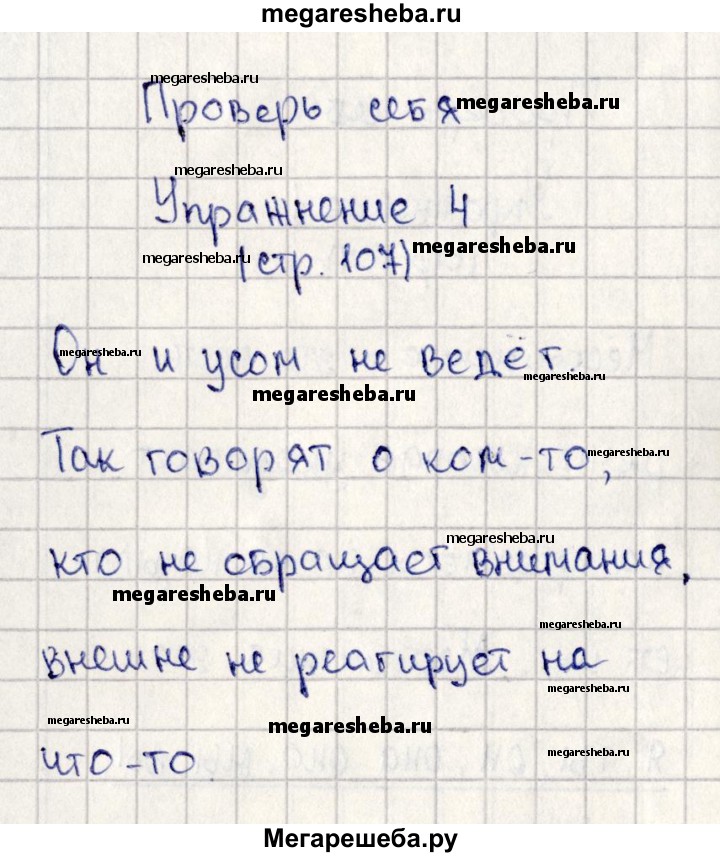 megaresheba.ru
megaresheba.ru
Проверь себя megaresheba.ru
megaresheba.ru
Упражнение 4
megaresheba.ru (стр. 107) megaresheba.ru
megaresheba.ru Он и усом не ведёт.
megaresheba.ru
megaresheba.ru
Так говорят о ком-то, megaresheba.ru
megaresheba.ru
кто не обращает внимания,
megaresheba.ru
megaresheba.ru
внешне не реагирует на
megaresheba.ru
megaresheba.ru
megaresheba.ru
что-то. megaresheba.ru
Мегарешеба.ру